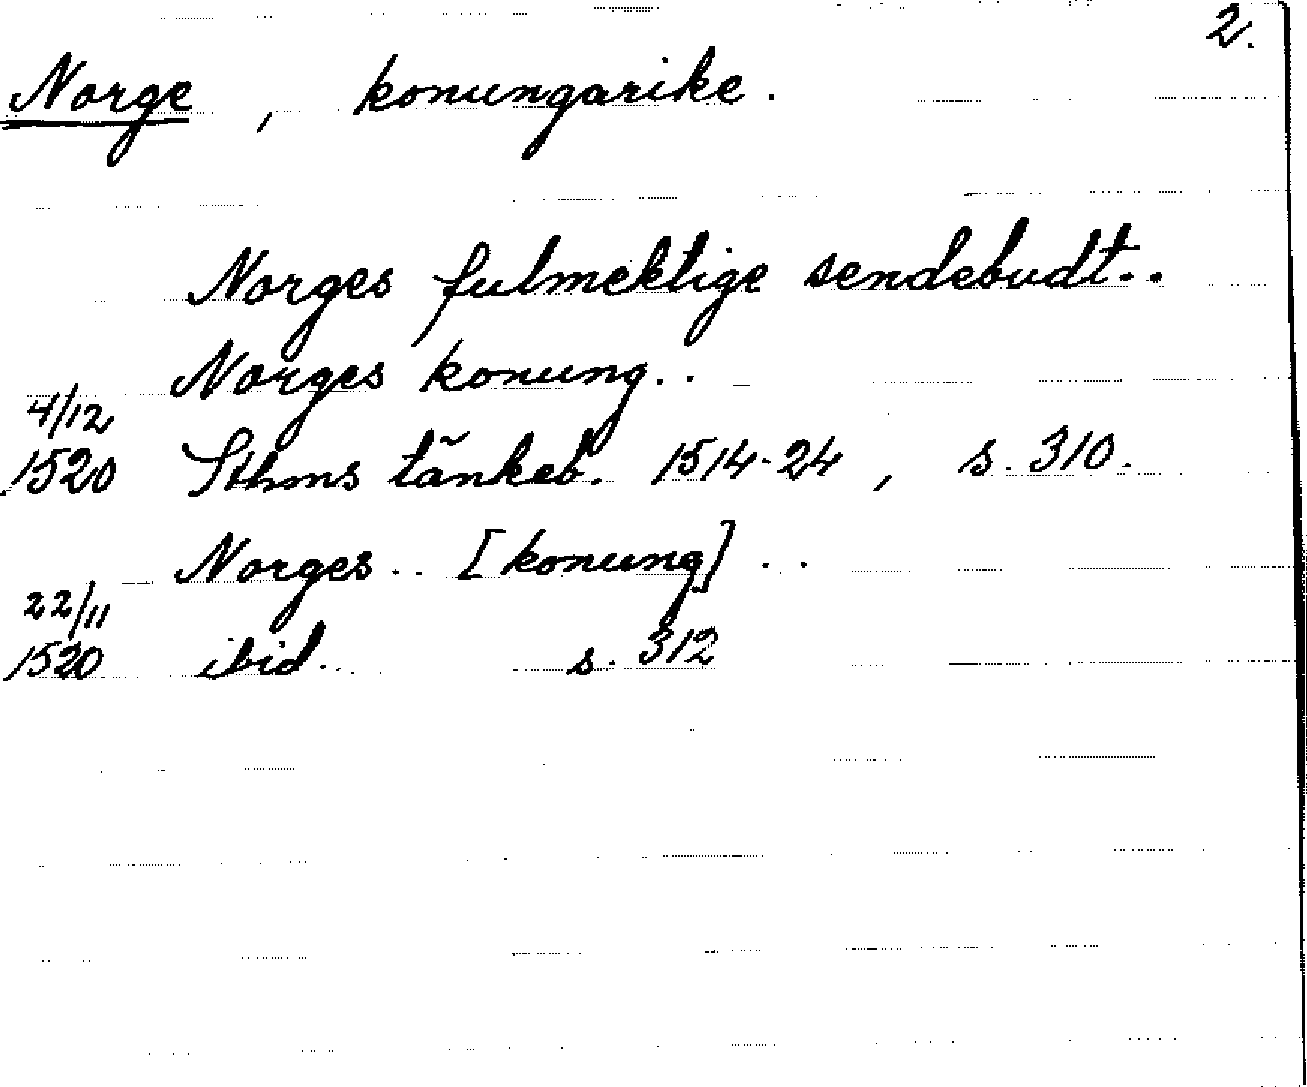 2.
Norge , konungarike.
Norges fulmektige sendebudt..
Norges konung..
4/12
1520 Sthms tänkeb. 1514-24 , s. 310.
Norges.. [konung] ..
22/11
1520 ibid. s. 312